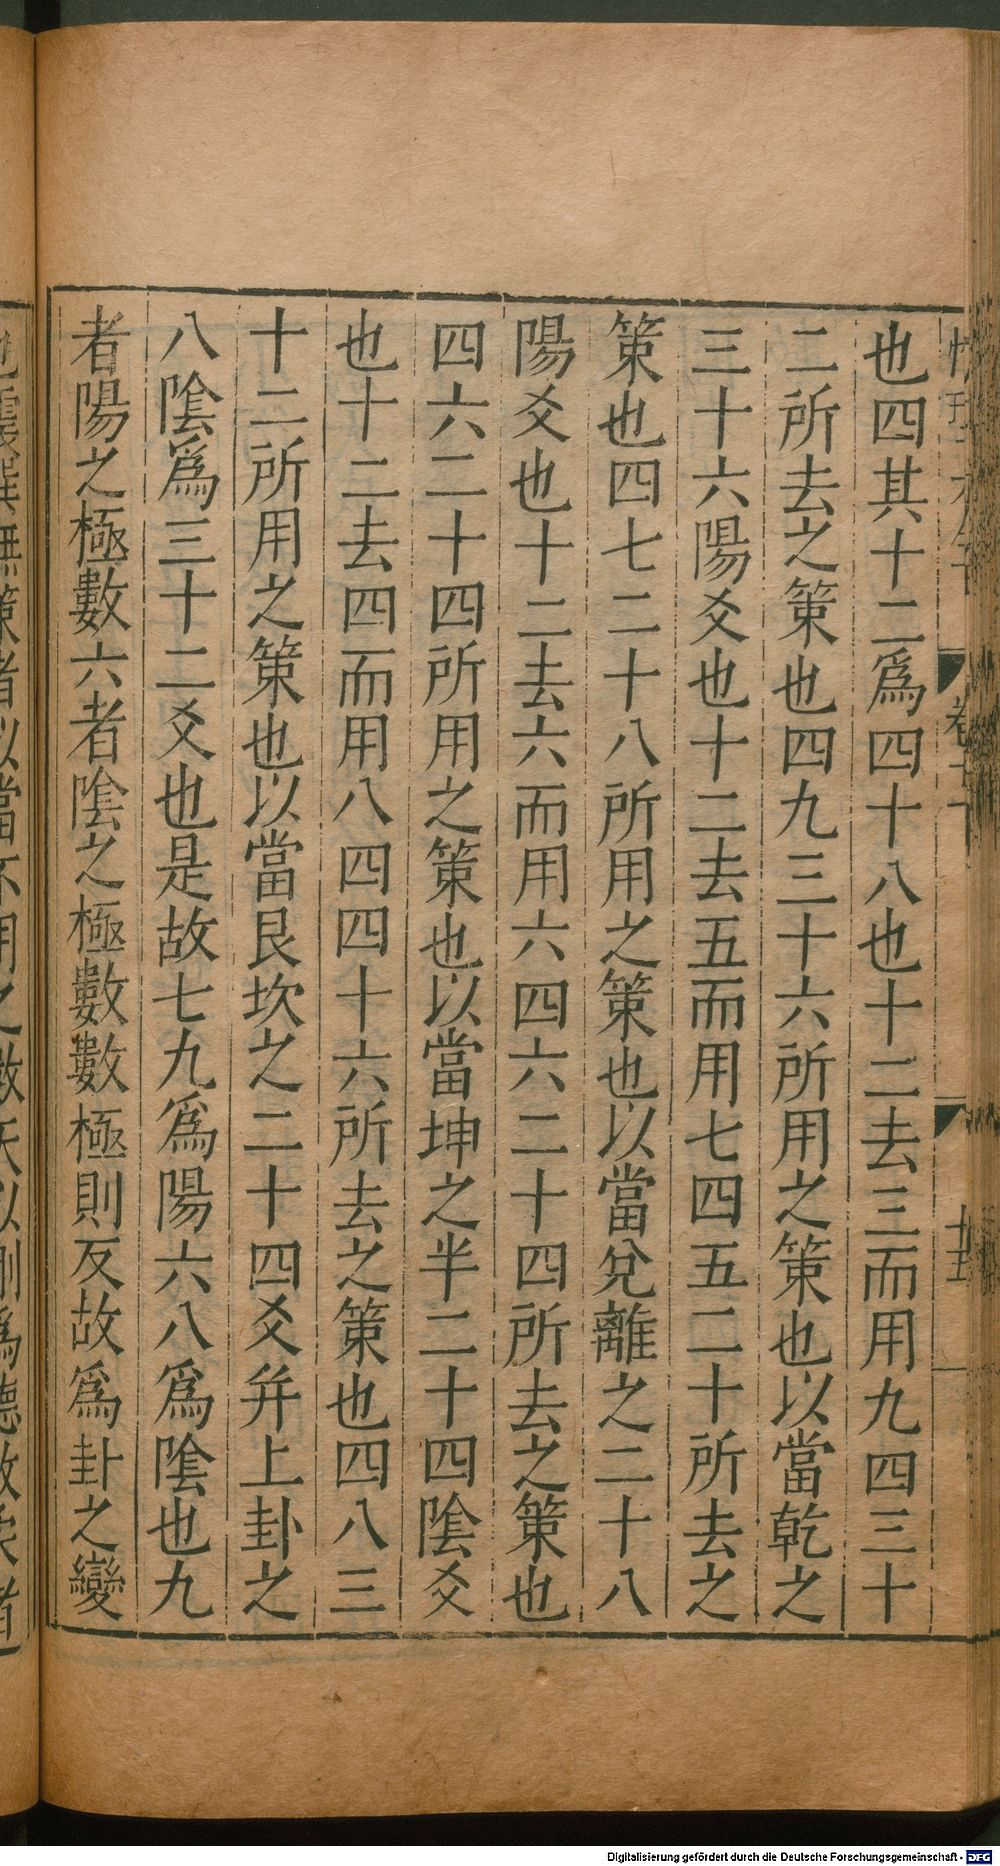 也四其十二爲四十八也十二去三而用九四三十
二所去之策也四九三十六所用之策也以當乾之
三十六陽爻也十二去五而用七四五二十所去之
策也四七二十八所用之策也以當兌離之二十八
陽爻也十二去六而用六四六二十四所去之策也
四六二十四所用之策也以當坤之半二十四陰爻
也十二去四而用八四四十六所去之策也四八三
十二所用之策也以當艮坎之二十四爻并上卦之
八陰爲三十二爻也是故七九爲陽六八爲陰也九
者陽之極數六者陰之極數數極則反故爲卦之變
Digitalisierung gefördert durch die Deutsche Forschungsgemeinschaft - DFG